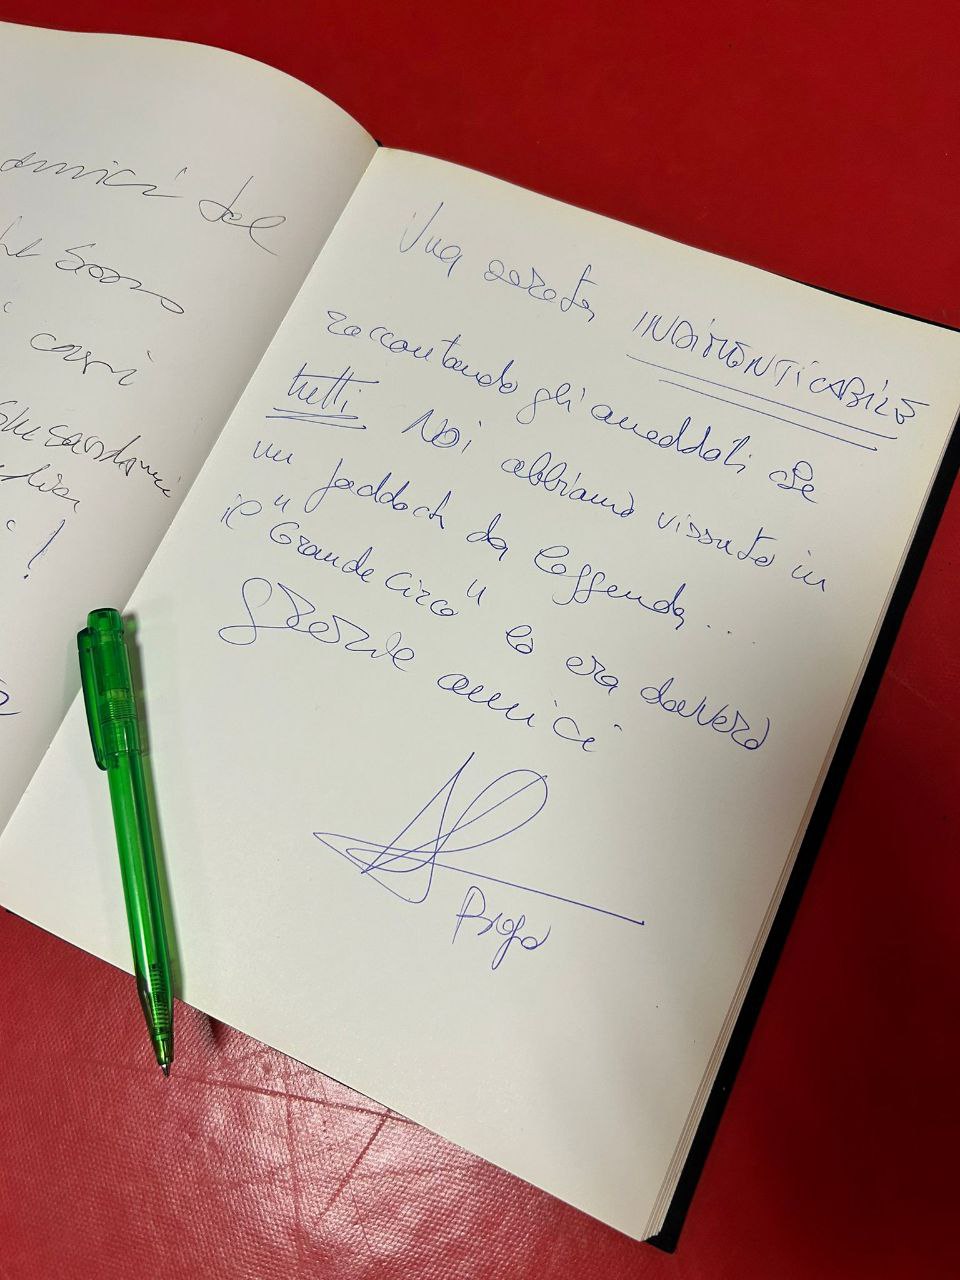 amici del
sono
corsi
!
Una serata INDIMENTICABILE
raccontando gli aneddoti che
tutti Noi abbiamo vissuto in
un paddock da leggenda....
il "Grande Circo" lo era davvero
Grazie amici